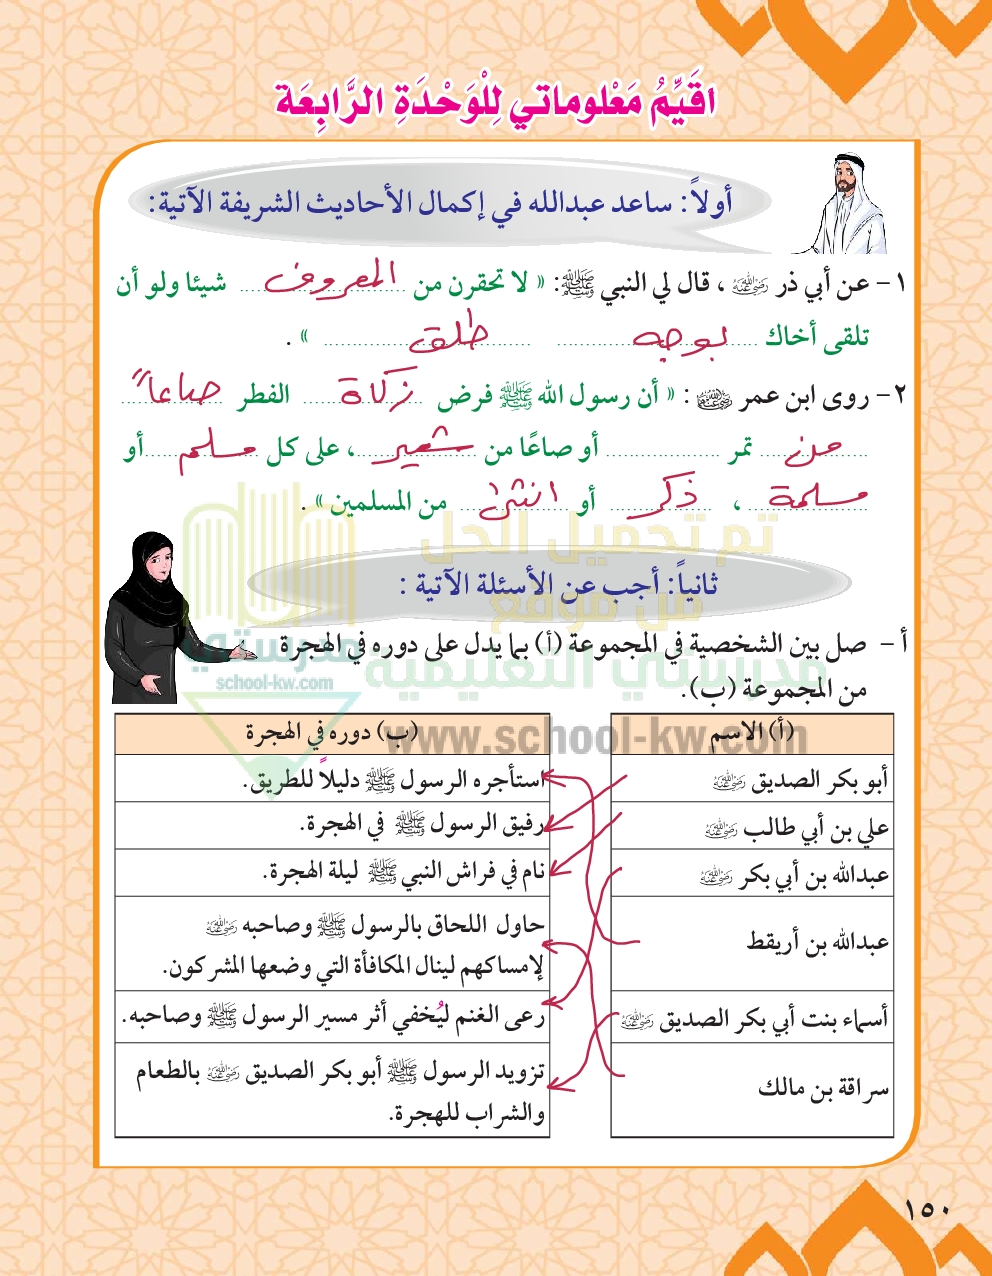 اقَيِّمُ مَعْلوماتي لِلْوَحْدَةِ الرَّابِعَة
أولاً: ساعد عبدالله في إكمال الأحاديث الشريفة الآتية:
١- عن أبي ذر رضي الله عنه ، قال لي النبي ﷺ: « لا تحقرن من المعروف شيئا ولو أن
تلقى أخاك بوجه طلق » .
٢- روى ابن عمر رضي الله عنهما : « أن رسول الله ﷺ فرض زكاة الفطر صاعاً
من تمر أو صاعًا من شعير ، على كل مسلم أو
مسلمة ، ذكر أو انثى من المسلمين » .
تم تحميل الحل
من موقع
مدرستي التعليمية
www.school-kw.com
مدرستي
school-kw.com
ثانياً: أجب عن الأسئلة الآتية :
أ - صل بين الشخصية في المجموعة (أ) بما يدل على دوره في الهجرة
من المجموعة (ب).
(أ) الاسم (ب) دوره في الهجرة
أبو بكر الصديق رضي الله عنه استأجره الرسول ﷺ دليلاً للطريق.
علي بن أبي طالب رضي الله عنه رفيق الرسول ﷺ في الهجرة.
عبدالله بن أبي بكر رضي الله عنه نام في فراش النبي ﷺ ليلة الهجرة.
عبدالله بن أريقط حاول اللحاق بالرسول ﷺ وصاحبه رضي الله عنه
لإمساكهم لينال المكافأة التي وضعها المشركون.
أسماء بنت أبي بكر الصديق رضي الله عنه رعى الغنم ليُخفي أثر مسير الرسول ﷺ وصاحبه.
سراقة بن مالك تزويد الرسول ﷺ أبو بكر الصديق رضي الله عنه بالطعام
والشراب للهجرة.
١٥٠